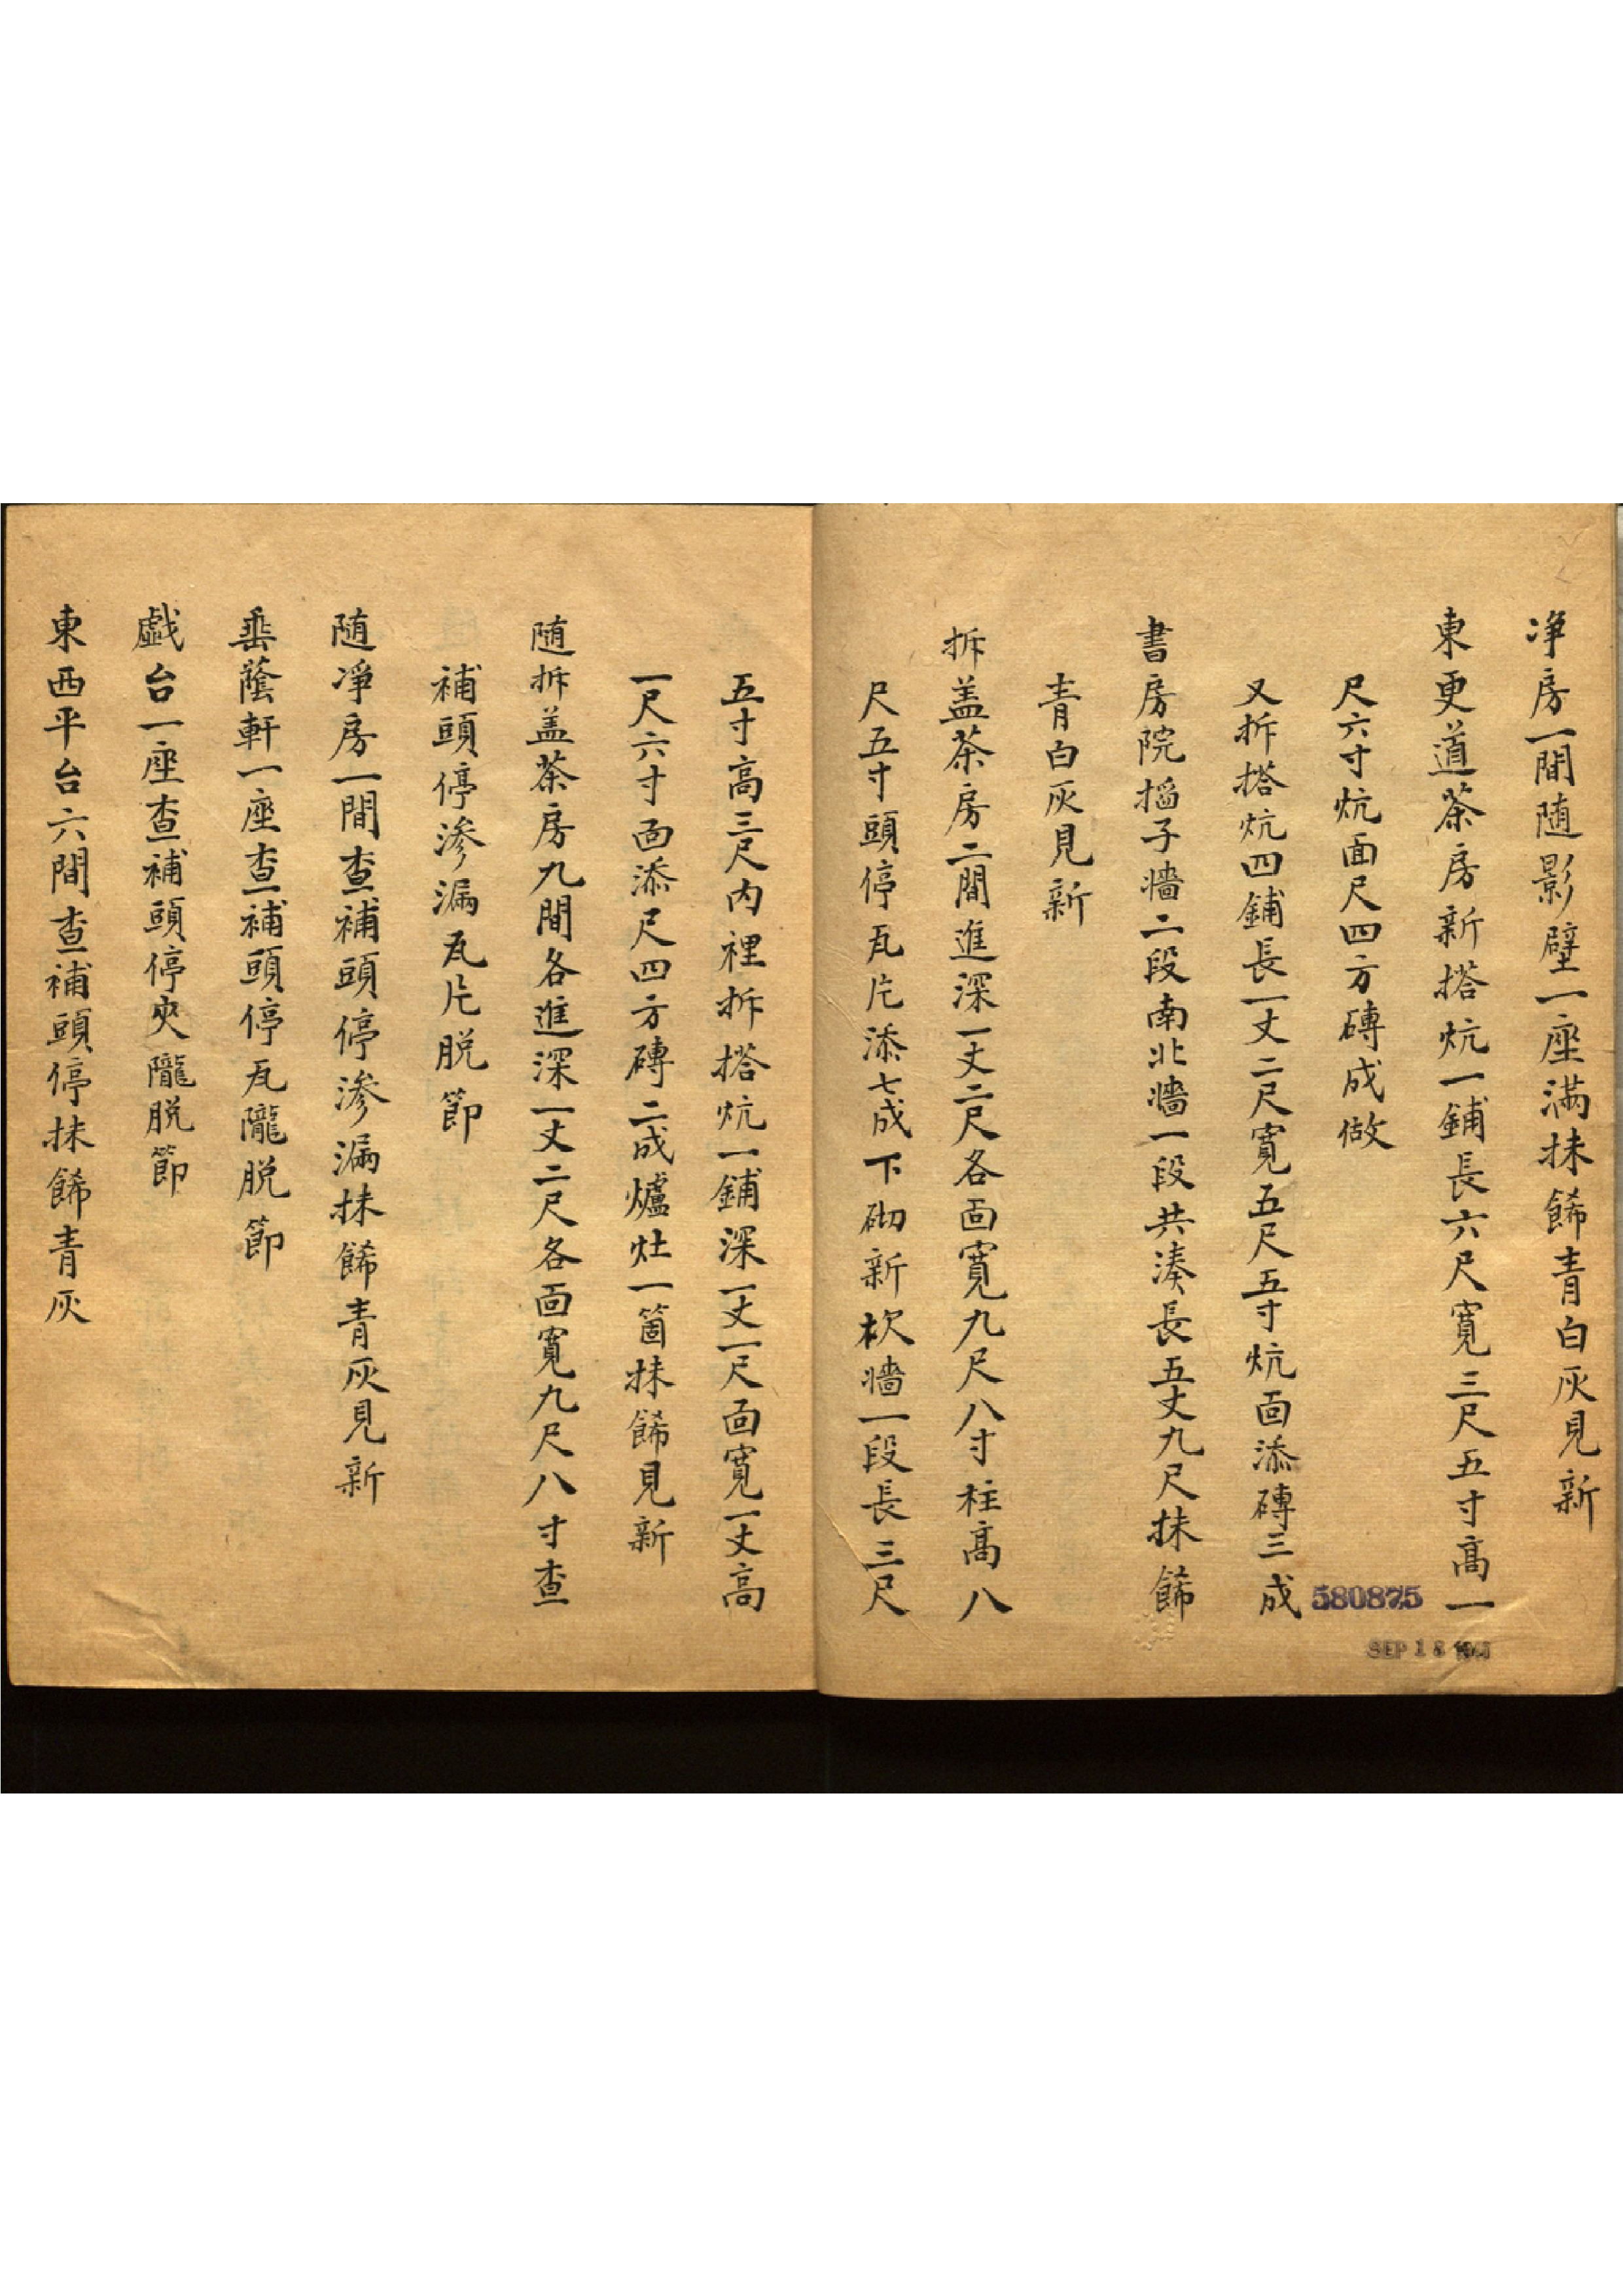 净房一間随影壁一座滿抹餙青白灰見新
東更道茶房新搭炕一鋪長六尺寛三尺五寸高一
尺六寸炕面尺四方磚成做
又拆搭炕四鋪長一丈二尺寛五尺五寸炕面添磚三成
書房院搯子墻二段南北墻一段共湊長五丈九尺抹餙
青白灰見新
拆盖茶房二間進深一丈二尺各面寛九尺八寸柱高八
尺五寸頭停瓦片添七成下砌新栨墻一段長三尺
五寸高三尺内裡拆搭炕一鋪深一丈一尺面寛一丈高
一尺六寸面添尺四方磚二成爐灶一箇抹餙見新
随拆盖茶房九間各進深一丈二尺各面寛九尺八寸查
補頭停渗漏瓦片脱節
随净房一間查補頭停渗漏抹餙青灰見新
垂蔭軒一座查補頭停瓦隴脱節
戯台一座查補頭停夾隴脱節
東西平台六間查補頭停抹餙青灰
580875
SEP 18